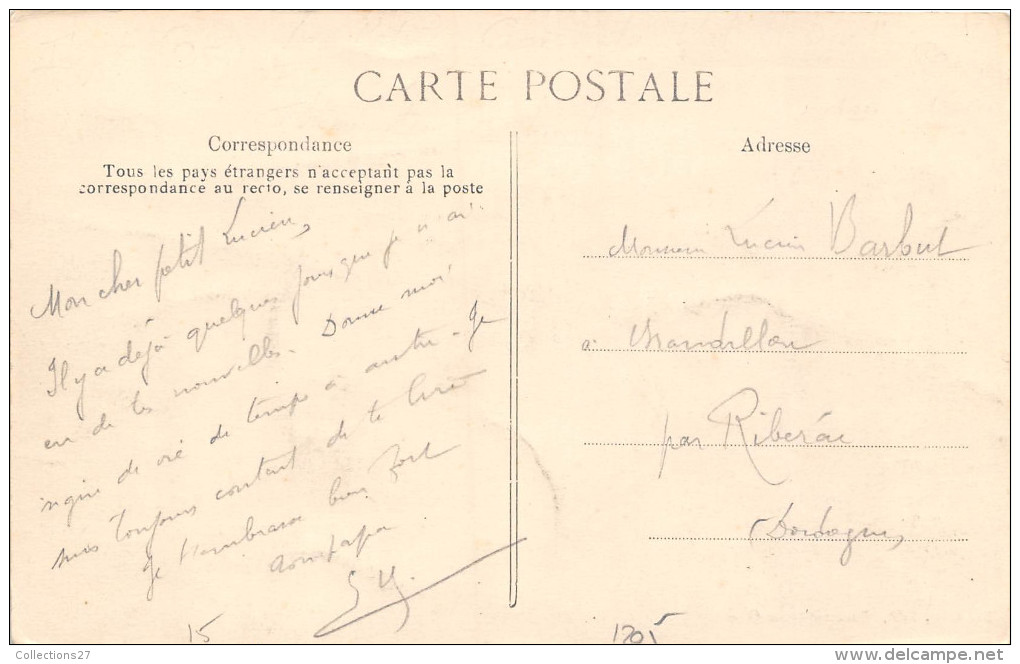 CARTE POSTALE
Correspondance
Tous les pays étrangers n'acceptant pas la
correspondance au recto, se renseigner à la poste
Mon cher petit Lucien,
Il y a déjà quelques jours que je n'ai
eu de tes nouvelles. Donne moi
signe de vie de temps à autre. Je
suis toujours content de te lire
Je t'embrasse bien fort
ton papa
15
Adresse
Monsieur Lucien Barbut
à
par Riberac
(Dordogne)
1205
Collections27
delcampe.net